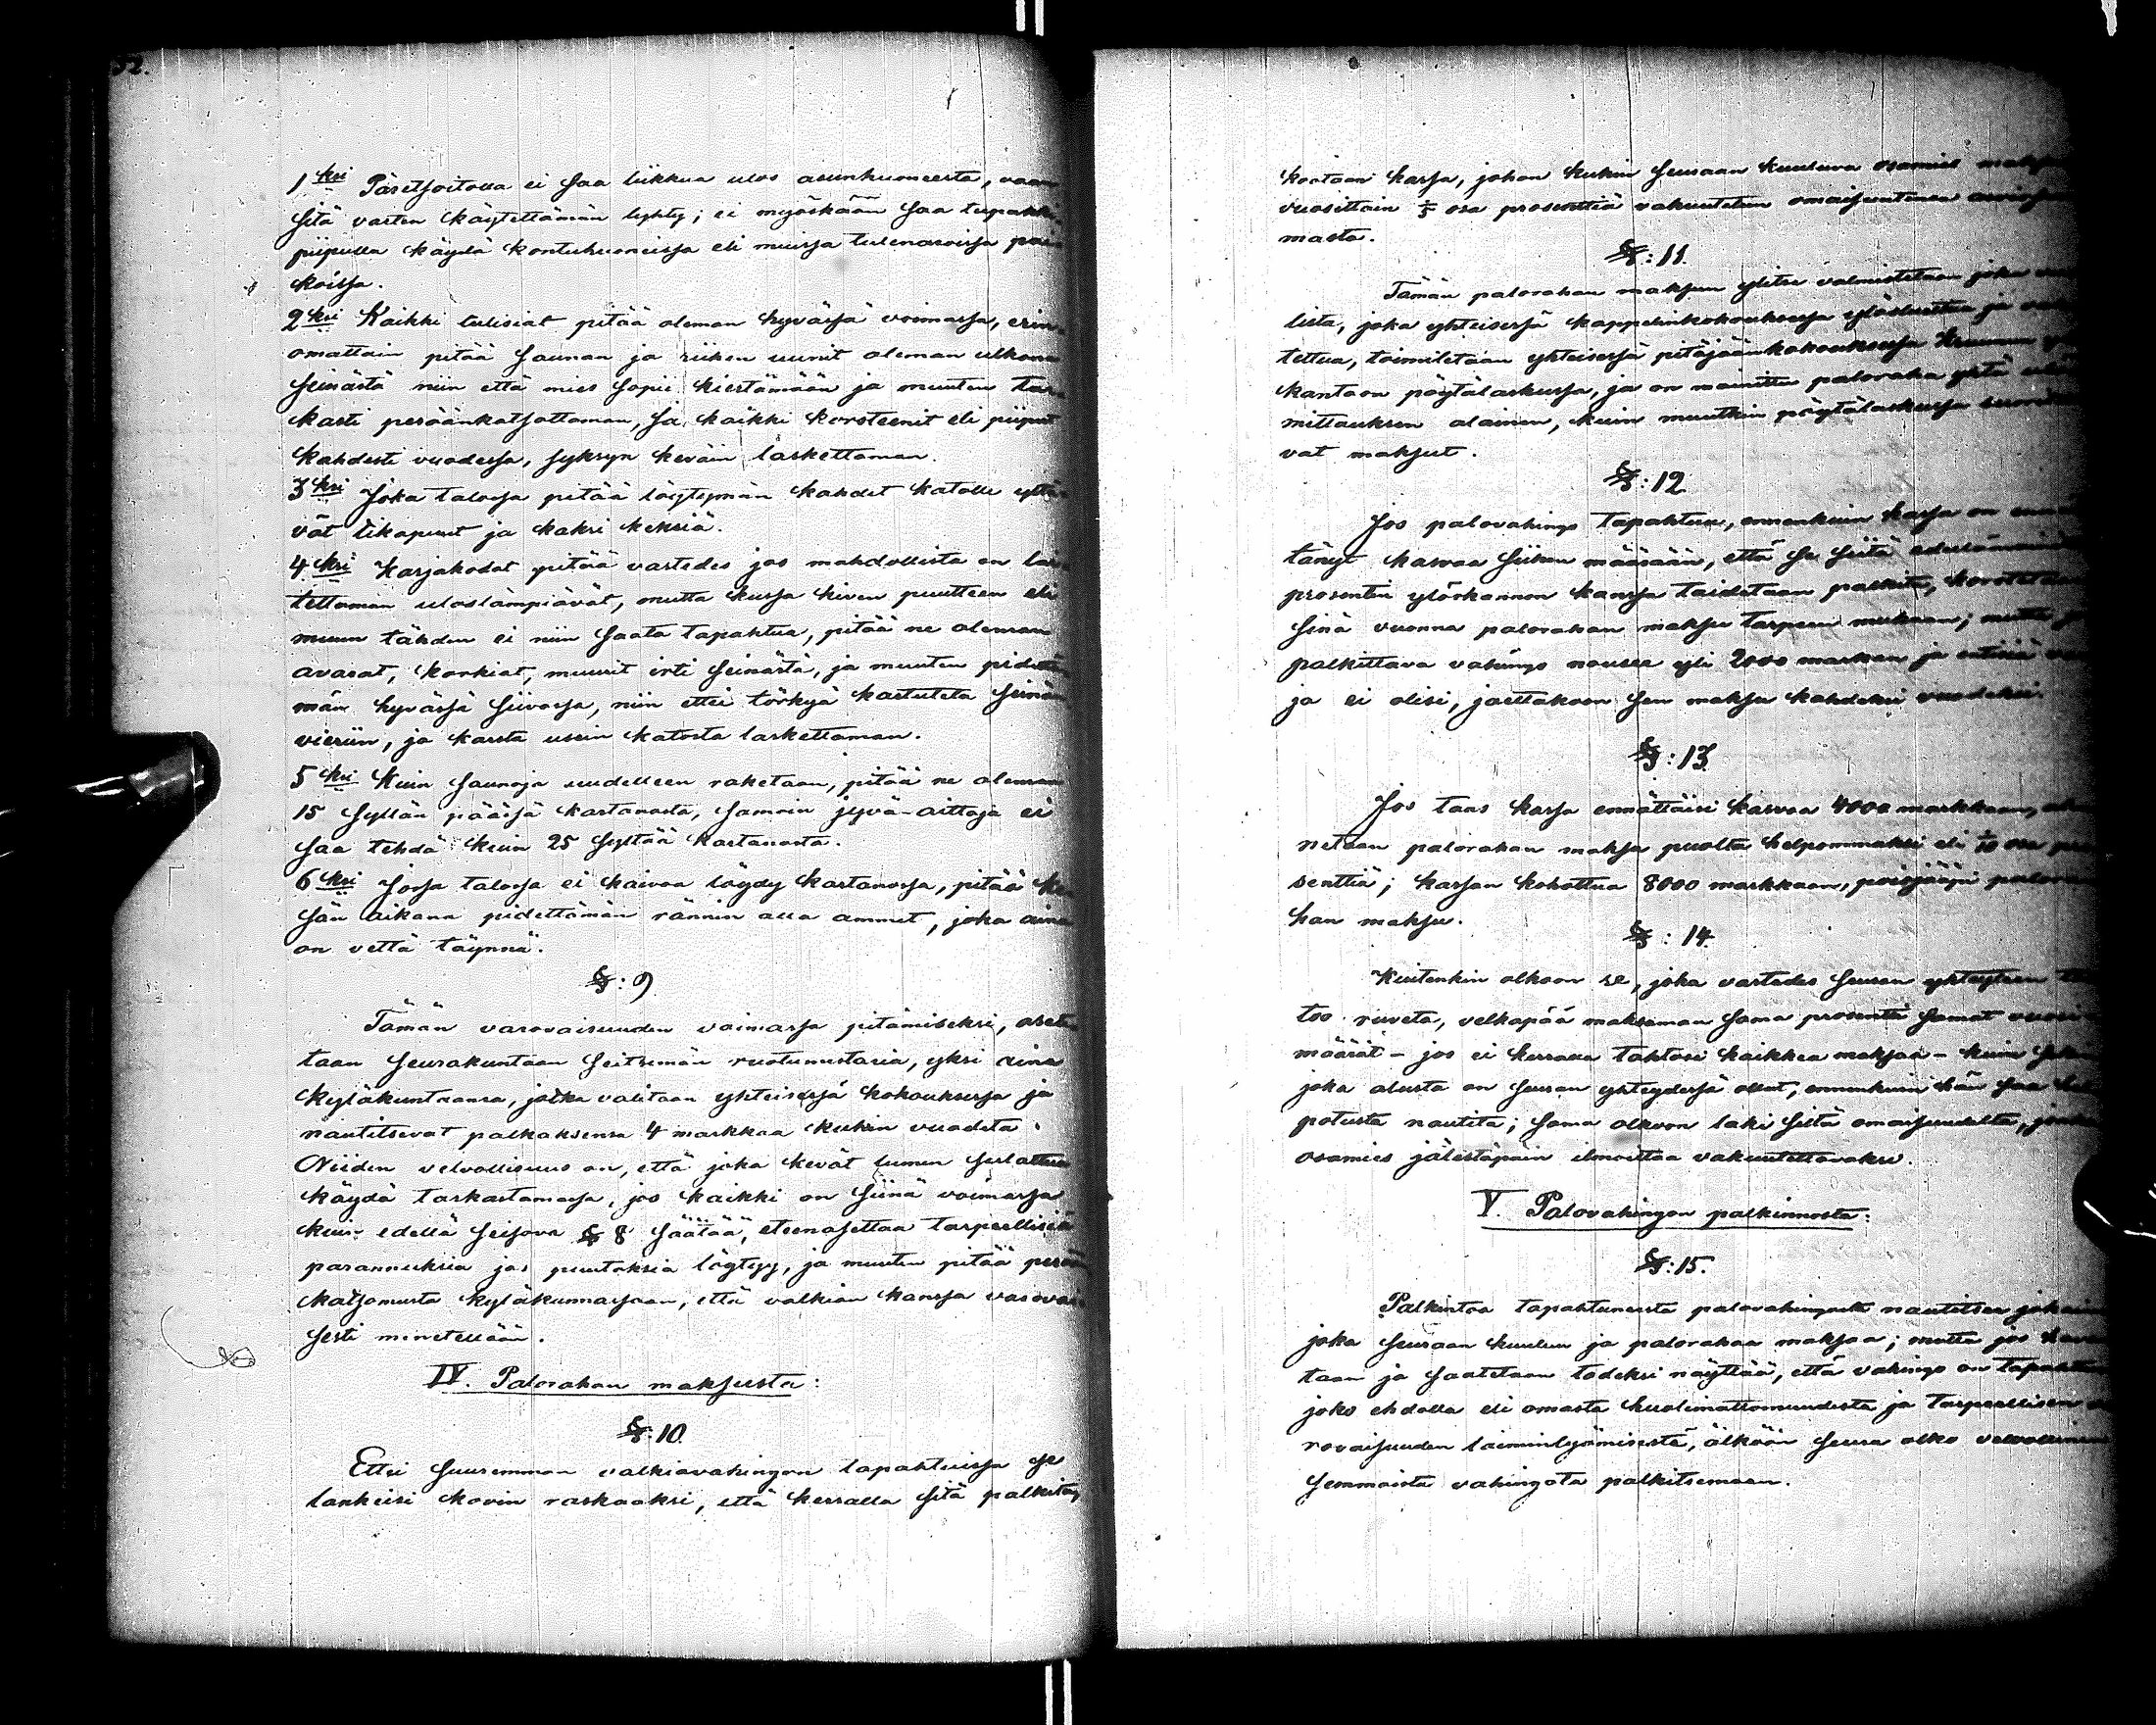 52.
1ksi Päretsoitolla ei saa liikkua ulos asuinhuoneesta, vaan
sitä varten käytettämän lyhty; ei myöskään saa tupakki
piipulla käydä kontuhuoneissa eli muissa tulenaroissa pai-
koissa.
2ksi Kaikki tulisiat pitää oleman hyvässä voimassa, erin-
omattain pitää saunan ja riihen uunit oleman ulkona
seinästä niin että mies sopii kiertämään ja muuten tar-
kasti peräänkatsottaman, ja kaikki korsteenit eli piiput
kahdesti vuodessa, syksyn keväin lasketteman.
3ksi Joka talossa pitää löytymän kahdet katolle yltä-
vät tikapuut ja kaksi keksiä.
4ksi Karjakodat pitää vastedes jos mahdollista on lai-
tettaman uloslämpiävät, mutta kussa kiven puutteen eli
muun tähden ei niin saata tapahtua, pitää ne oleman
avarat, korkiat, muurit irti seinästä, ja muuten pidettä-
män hyvässä siivossa, niin ettei törkyä kartuteta seinän
vieriin, ja karsta usein katosta laskettaman.
5ksi Kuin saunoja uudelleen raketaan, pitää ne oleman
15 syllän päässä kartanosta, samoin jyvä-aittoja ei
saa tehdä kuin 25 syltää kartanosta.
6ksi Jossa talossa ei kaivoa löydy kartanossa, pitää ke-
sän aikana pidettämän rännin alla ammet, joka aina
on vettä täynnä.
§: 9
Tämän varovaisuuden voimassa pitämiseksi, asete-
taan seurakuntaan seitsemän ruotumestaria, yksi aina
kyläkuntaansa, jotka valitaan yhteisessä kokouksessa ja
nautitsevat palkaksensa 4 markkaa kukin vuodelta.
Niiden velvollisuus on, että joka kevät lumen sulattua
käydä tarkastamassa, jos kaikki on siinä voimassa
kuin edellä seisova § 8 säätää, eteenasettaa tarpeellisia
parannuksia jos puutoksia löytyy, ja muuten pitää perään
katsomusta kyläkunnassaan, että valkian kanssa varovai-
sesti menetellään.
IV. Palorahan maksusta:
§: 10.
Ettei suuremman valkiavahingon tapahtuissa se
lankeisi kovin raskaaksi, että kerralla sitä palkita,
kootaan kassa, johon kukin seuraan kuuluva osamies maksaa
vuosittain 1/5 osa prosenttia vakuutetun omaisuutensa arviosum-
masta.
§: 11.
Tämän palorahan maksun ylitse valmistetaan joka
lista, joka yhteisessä kappelinkokouksessa ylösluettua ja
tettua, toimitetaan yhteisessä pitäjäänkokouksessa
kantaan pöytälaskussa, ja on mainittu paloraha yhtä
mittauksen alainen, kuin muutkin pöytälaskussa seuraa-
vat maksut.
§: 12
Jos palovahingo tapahtuu, ennenkuin kassa on ennät-
tänyt kasvaa siihen määrään, että se siitä edellämainitun
prosentin ylöskannon kanssa taidetaan palkita, korotetaan
sinä vuonna palorahan maksu tarpeen mukaan; mutta jos
palkittava vahingo nousee yli 2000 markan ja
ja ei olisi, jaettakoon sen maksu kahdeksi vuodeksi.
§: 13.
Jos taas kassa ennättäisi kasvaa 4000 markkaan, alen-
netaan palorahan maksu puolta helpommaksi eli 1/10 osa pro-
senttiä; kassan kohottua 8000 markkaan, poisjääpi palora-
han maksu.
§: 14.
Kuitenkin olkoon se, joka vastedes seuran yhteyteen
too ruveta, velkapää maksaman sama prosentti samat vuosi-
määrät - jos ei kerralla tahtoisi kaikkea maksaa - kuin
joka alusta on seuran yhteydessä ollut, ennenkuin hän saa hel-
potusta nautita; sama olkoon laki siitä omaisuudelta, jonka
osamies jälestäpäin ilmoittaa vakuutettavaksi.
V. Palovahingon palkinnosta:
§: 15.
Palkintoa tapahtuneesta palovahingosta nautitsee jokainen
joka seuraan kuuluu ja palorahaa maksaa; mutta jos
taan ja saatetaan todeksi näyttää, että vahingo on tapahtunut
joko ehdolla eli omasta huolimattomuudesta ja tarpeellisen va-
rovaisuuden laiminlyömisestä, älköön seura olko velvollinen
semmoista vahingota palkitsemaan.